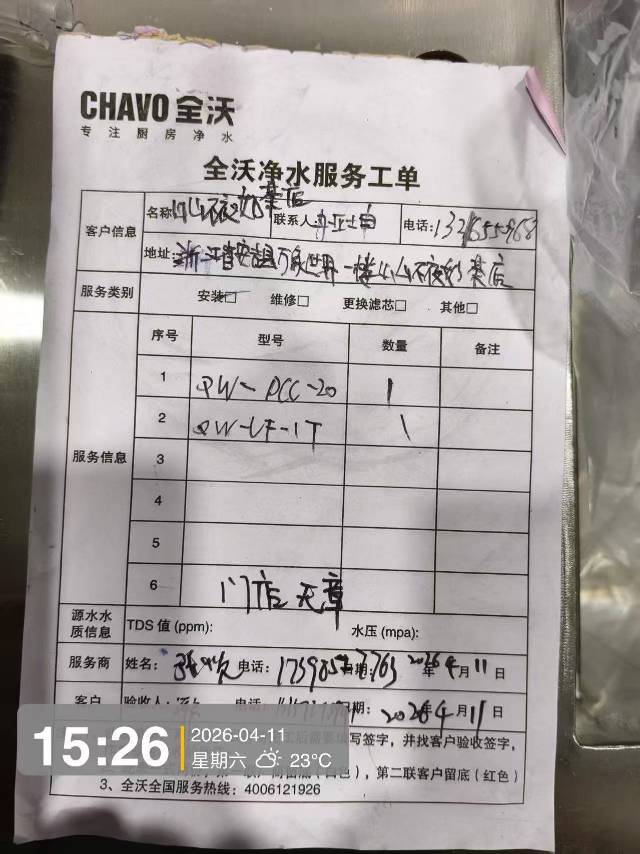 CHAVO 全沃
专注厨房净水
全沃净水服务工单
客户信息
名称 山不夜奶茶店 联系人: 电话:
地址: 浙江省安 万 世界一楼 山不夜奶茶店
服务类别 安装□ 维修□ 更换滤芯□ 其他□
服务信息
序号 型号 数量 备注
1 QW-PCC-20 1
2 QW-UF-1T 1
3
4
5
6 门店无章
源水水质信息 TDS 值 (ppm): 水压 (mpa):
服务商 姓名: 电话: 日期: 2026年4月11日
客户 验收人: 电话: 日期: 2026年4月11日
填写签字，并找客户验收签字，
色），第二联客户留底（红色）
3、全沃全国服务热线：4006121926
15:26
2026-04-11
星期六 23°C